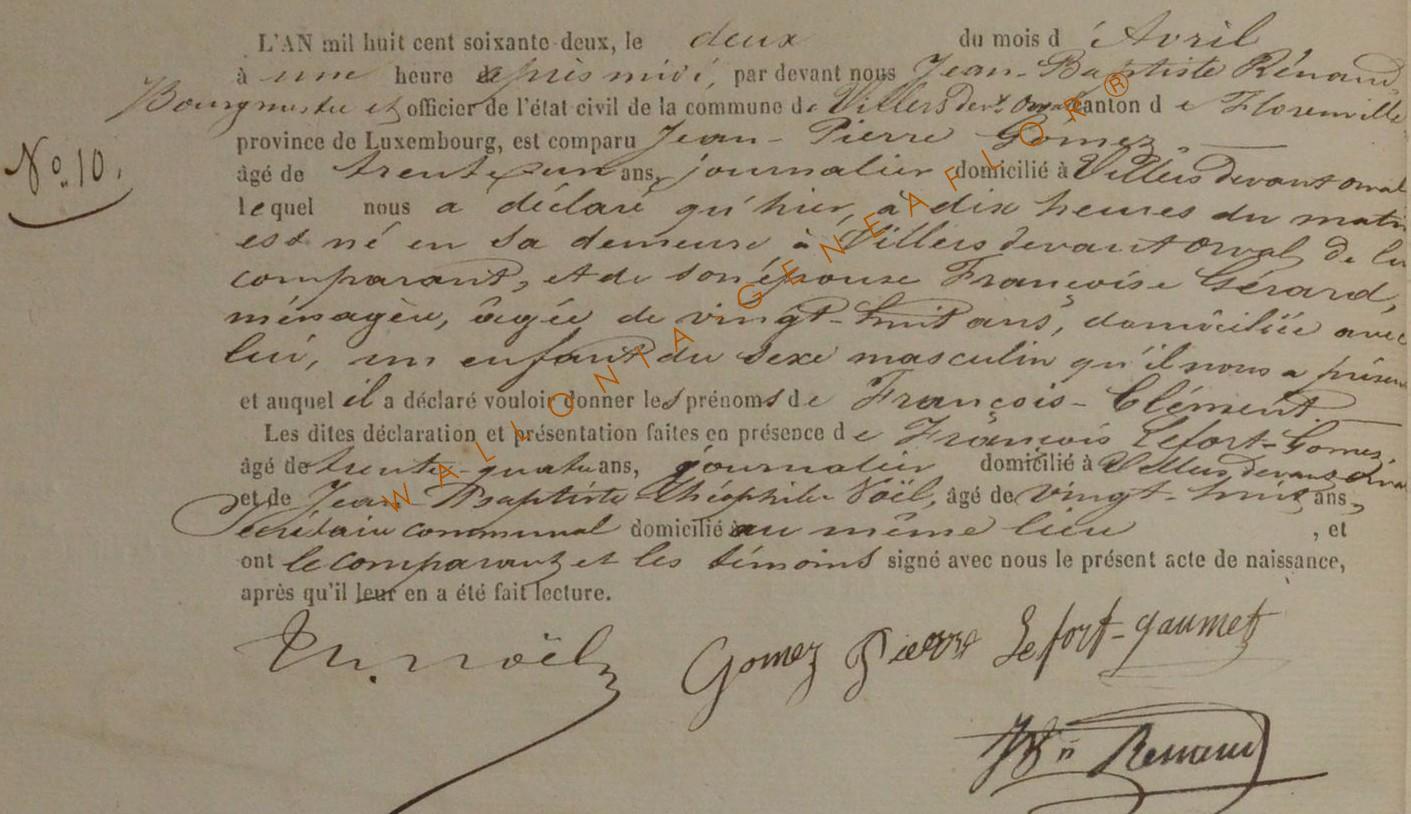 L'AN mil huit cent soixante-deux, le deux du mois d'Avril
à une heure après midi, par devant nous Jean-Baptiste Rénaud,
Bourgmestre et officier de l'état civil de la commune de Villers devt Orval canton de Florenville
province de Luxembourg, est comparu Jean-Pierre Gomez
No. 10.
âgé de trente-un ans, journalier domicilié à Villers devant orval
lequel nous a déclaré qu'hier, à dix heures du matin
est né en sa demeure à Villers devant orval, de lui
comparant, et de son épouse Françoise Gérard,
ménagère, âgée de vingt-huit ans, domiciliée avec
lui, un enfant du sexe masculin qu'il nous a présenté
et auquel il a déclaré vouloir donner les prénoms de François-Clément
Les dites déclaration et présentation faites en présence de François Lefort-Gomez,
âgé de trente-quatre ans, journalier domicilié à Villers devant Orval
et de Jean Baptiste Théophile Noël, âgé de vingt-huit ans,
Secrétaire communal domicilié au même lieu , et
ont le comparant et les témoins signé avec nous le présent acte de naissance,
après qu'il leur en a été fait lecture.
Th. Noël Gomez Pierre Lefort-gaumetz
JBn Renaud
WALLONIA-GENEAFLOR®